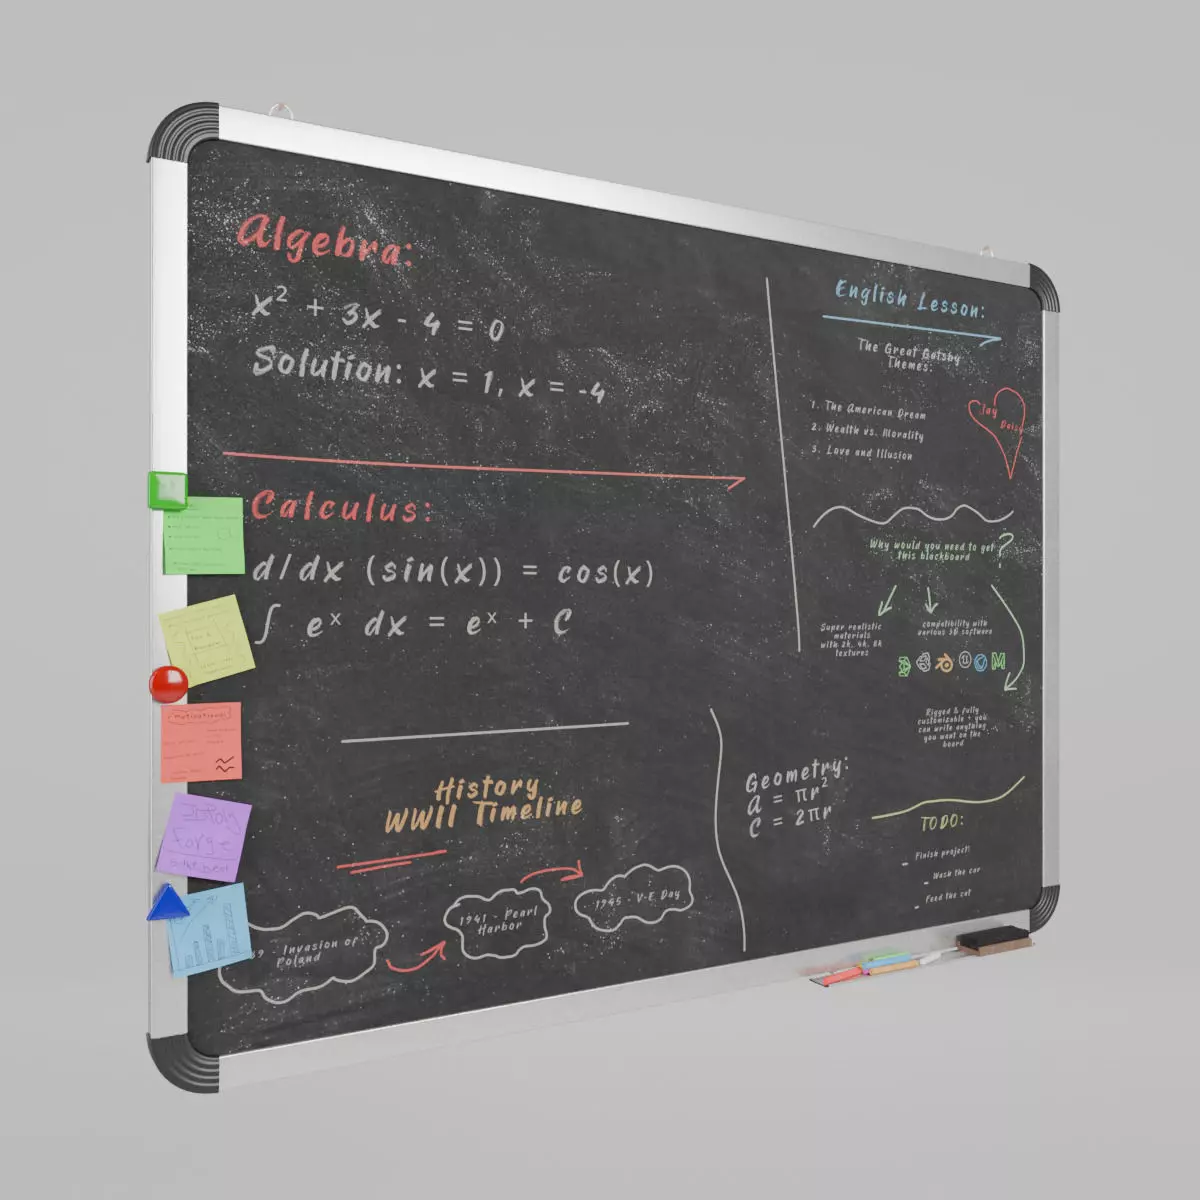 Algebra:
x² + 3x - 4 = 0
Solution: x = 1, x = -4
Calculus:
d/dx (sin(x)) = cos(x)
∫ eˣ dx = eˣ + C
History
WWII Timeline
39 - Invasion of
Poland
1941 - Pearl
Harbor
1945 - V-E Day
Geometry:
A = πr²
C = 2πr
English Lesson:
The Great Gatsby
Themes:
1. The American Dream
2. Wealth vs. Morality
3. Love and Illusion
Jay
Daisy
Why would you need to get
this blackboard
?
Super realistic
materials
with 2k, 4k, 8k
textures
compatibility with
various 3D software
Rigged & fully
customizable + you
can write anything
you want on the
board
TODO:
- Finish project!
- Wash the car
- Feed the cat
motivational
Forge